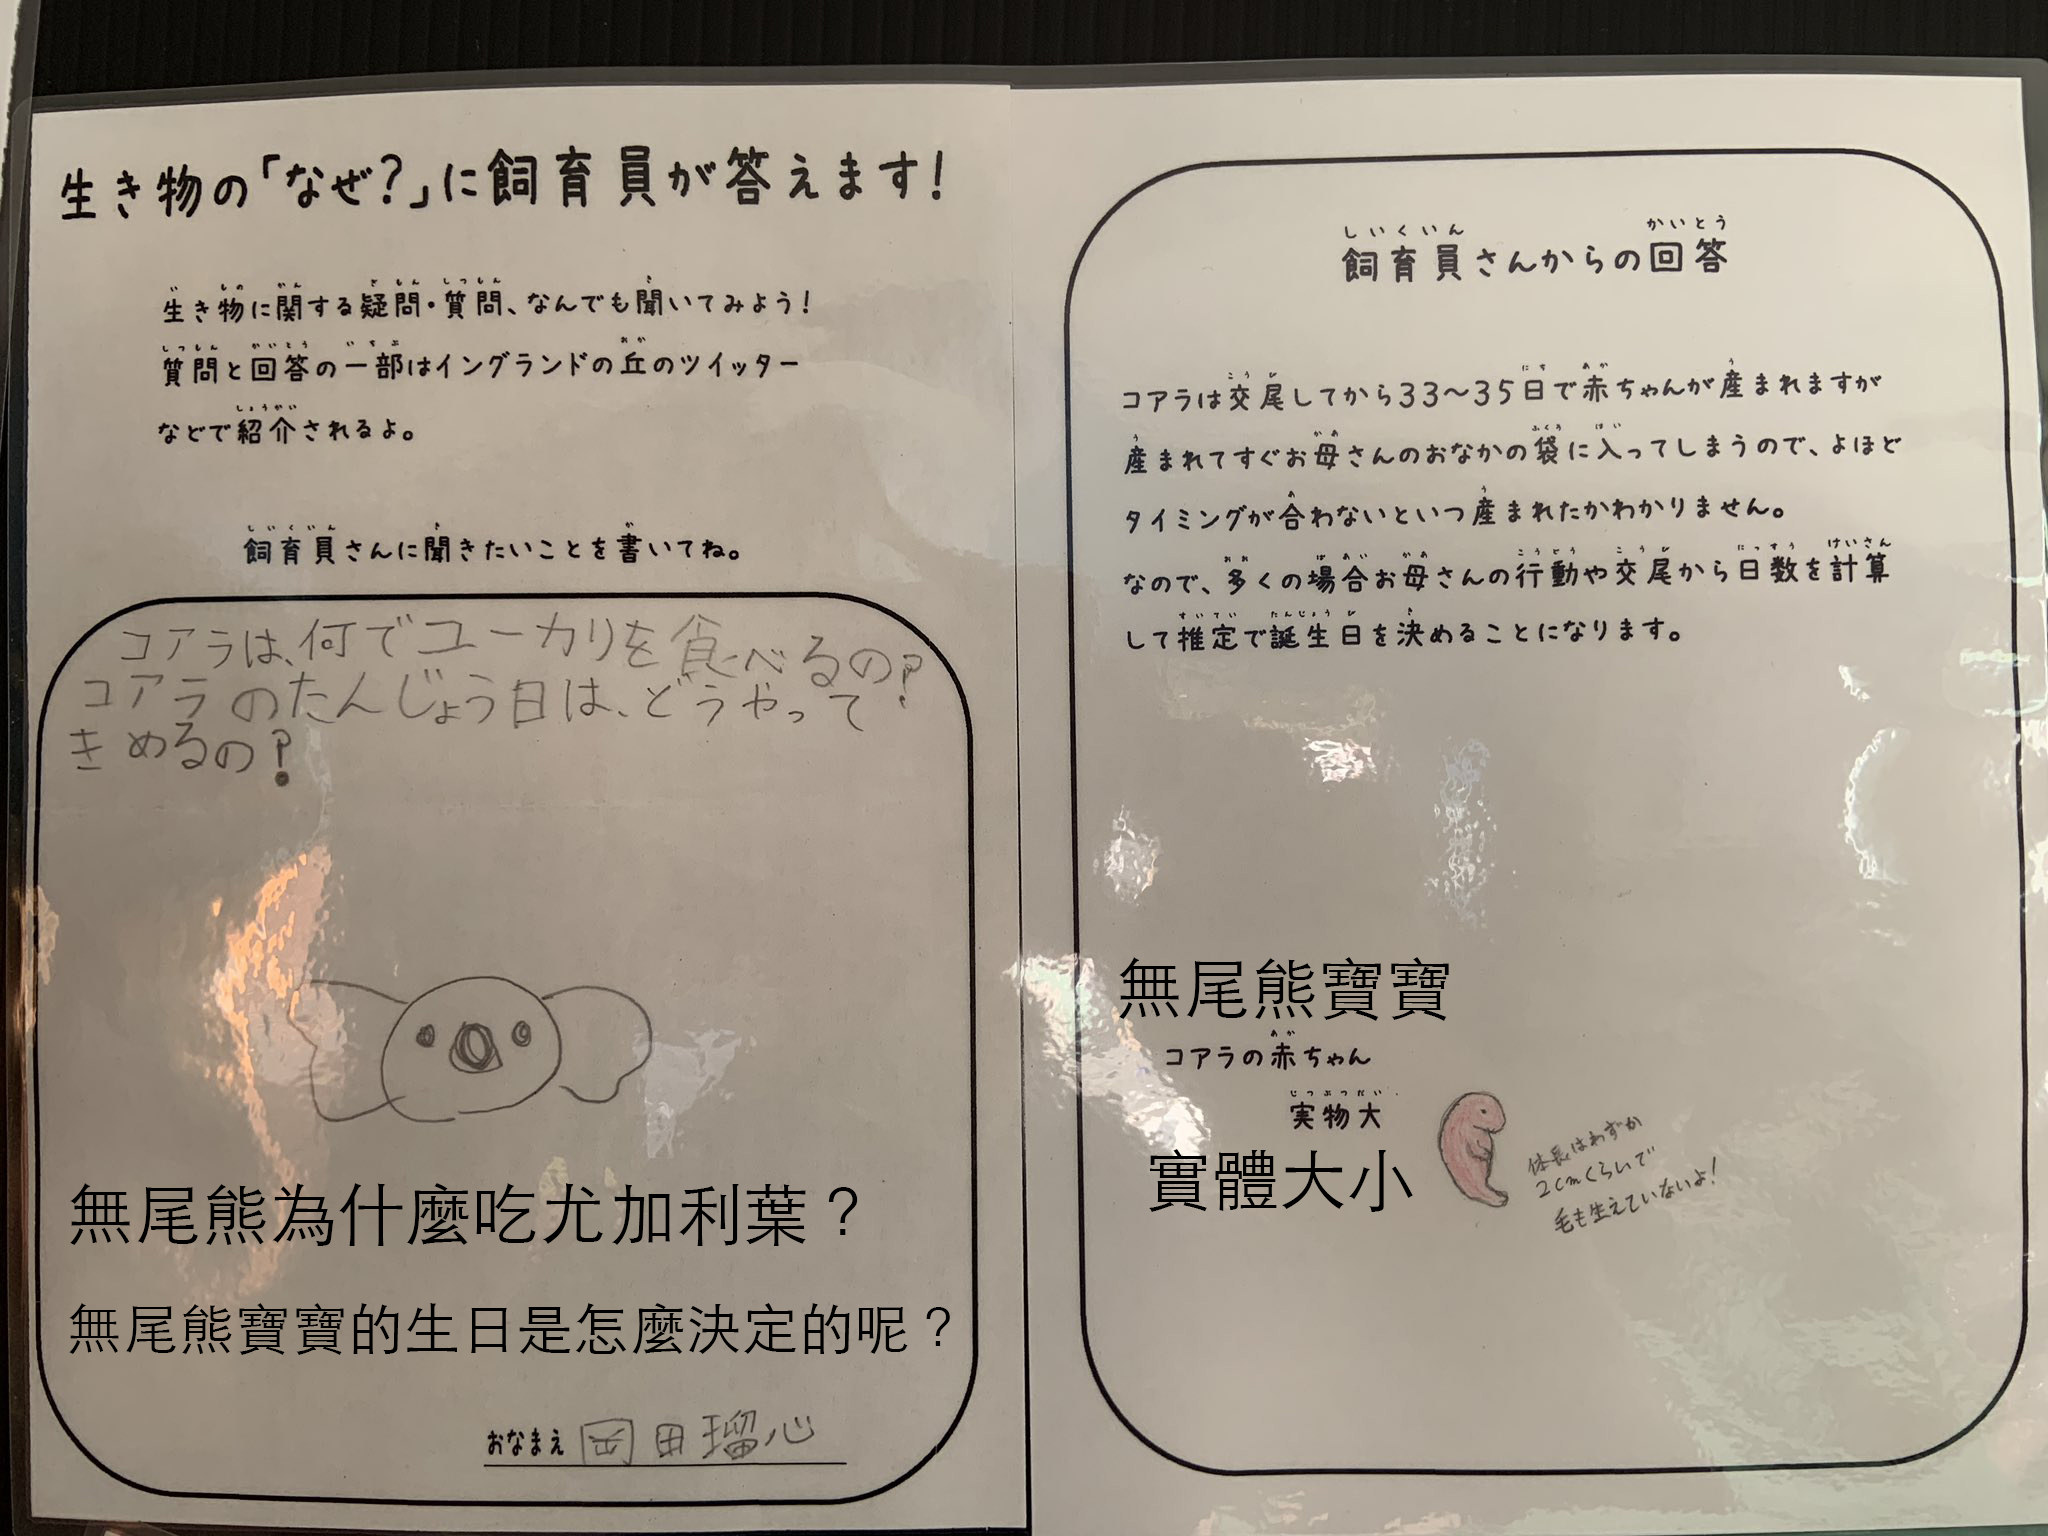 生き物の「なぜ?」に飼育員が答えます!
生き物に関する疑問・質問、なんでも聞いてみよう!
質問と回答の一部はイングランドの丘のツイッター
などで紹介されるよ。
飼育員さんに聞きたいことを書いてね。
コアラは、何でユーカリを食べるの?
コアラのたんじょう日は、どうやって
きめるの?
無尾熊為什麼吃尤加利葉?
無尾熊寶寶的生日是怎麼決定的呢?
おなまえ 岡田瑠心
飼育員さんからの回答
コアラは交尾してから33~35日で赤ちゃんが産まれますが
産まれてすぐお母さんのおなかの袋に入ってしまうので、よほど
タイミングが合わないといつ産まれたかわかりません。
なので、多くの場合お母さんの行動や交尾から日数を計算
して推定で誕生日を決めることになります。
無尾熊寶寶
コアラの赤ちゃん
実物大
實體大小
体長はわずか
2cmくらいで
毛も生えていないよ!